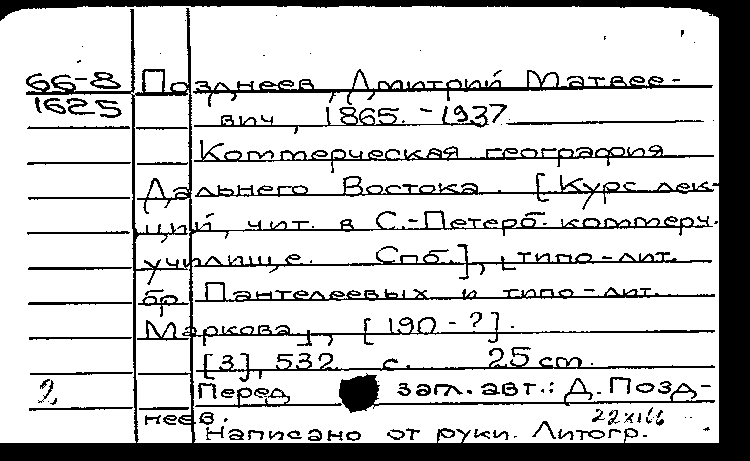 66-8 Позднеев, Дмитрий Матвее-
1625 вич, 1865. - 1937
Коммерческая география
Дальнего Востока. [Курс лек-
ций, чит. в С.-Петерб. коммерч.
училище. Спб.], [типо-лит.
бр. Пантелеевых и типо-лит.
Маркова], [190-?].
[3], 532 с. 25 cm.
2 Перед загл. авт.: Д. Позд-
неев.
22 XI 66
Написано от руки. Литогр.